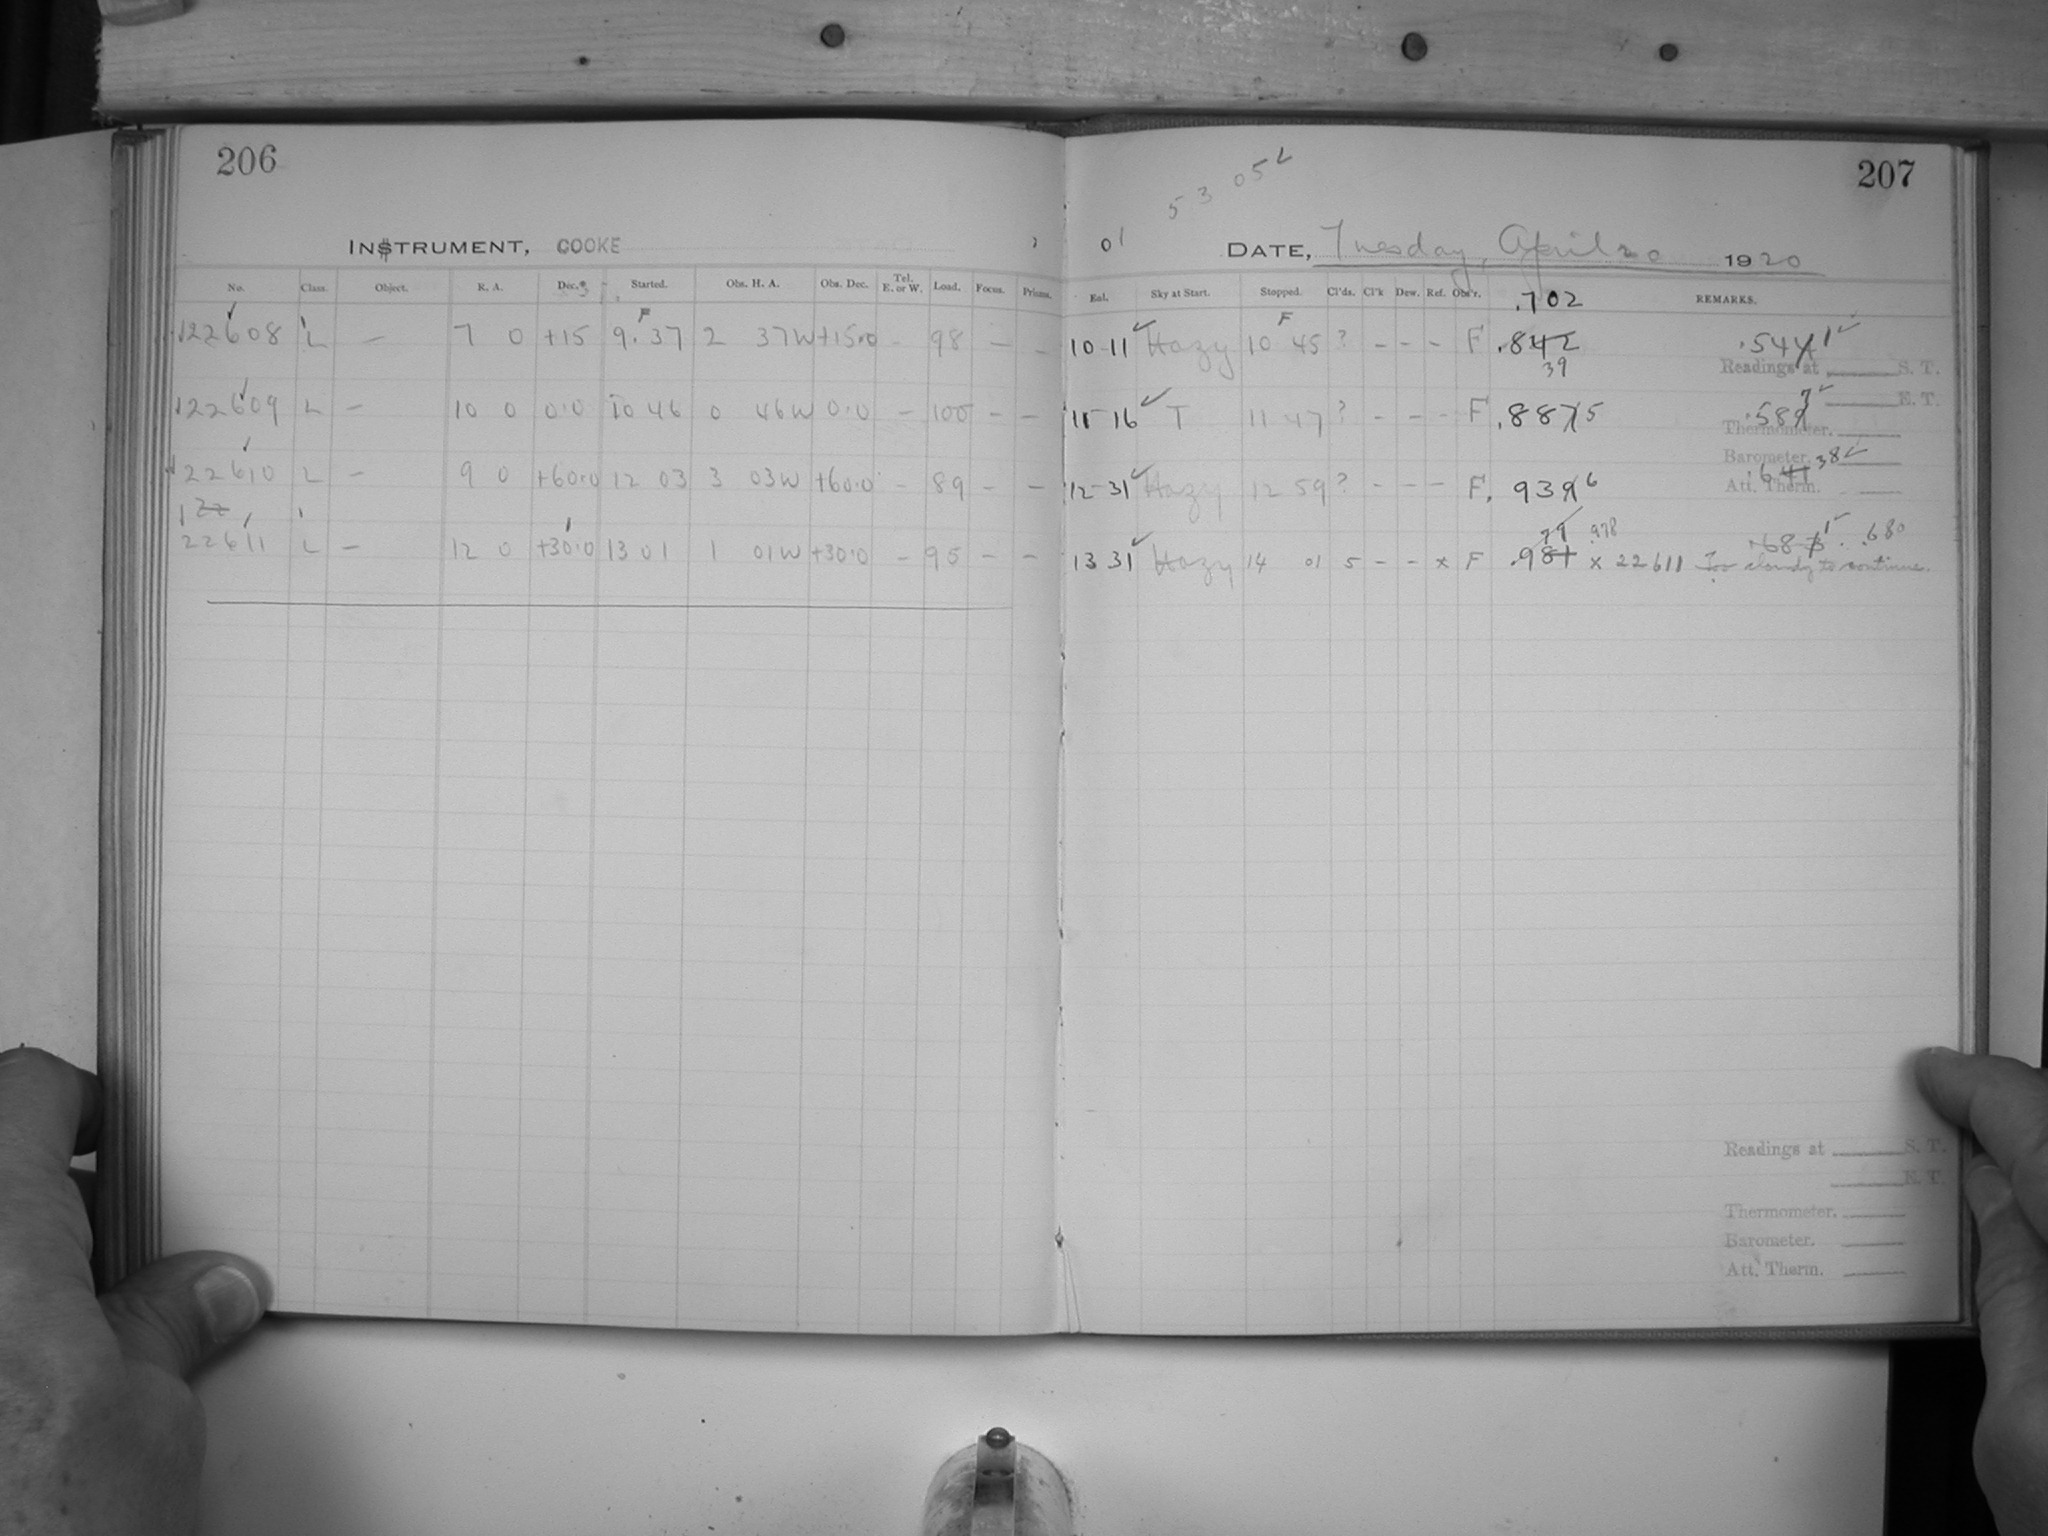 206
INSTRUMENT, COOKE
No. Class. Object. R. A. Dec. Started. Obs. H. A. Obs. Dec. Tel. E. or W. Load. Focus. Prisms.
F
22608 L — 7 0 +15 9.37 2 37W +15.0 - 98 — -
22609 L — 10 0 0.0 10 46 0 46W 0.0 — 100 — —
22610 L — 9 0 +60.0 12 03 3 03W +60.0 - 89 - —
22611 L — 12 0 +30.0 13 01 1 01W +30.0 - 95 - -
207
53 052
01
DATE, Tuesday, April 20 1920
Eal. Sky at Start. Stopped. Cl'ds. Cl'k Dew. Ref. Obs'r. .702 REMARKS.
F
10-11 Hazy 10 45 ? - - - F .842 .544 1
39
Readings at S. T.
E. T.
11-16 T 11 47 ? - - - F .887 5 .58 7
Thermometer.
Barometer.
12-31 Hazy 12 59 ? - - - F .939 6 .641 38
Att. Therm.
79 .978 .68 1 .680
13 31 Hazy 14 01 5 - - x F .981 x 22611 Too cloudy to continue.
Readings at S. T.
E. T.
Thermometer.
Barometer.
Att. Therm.